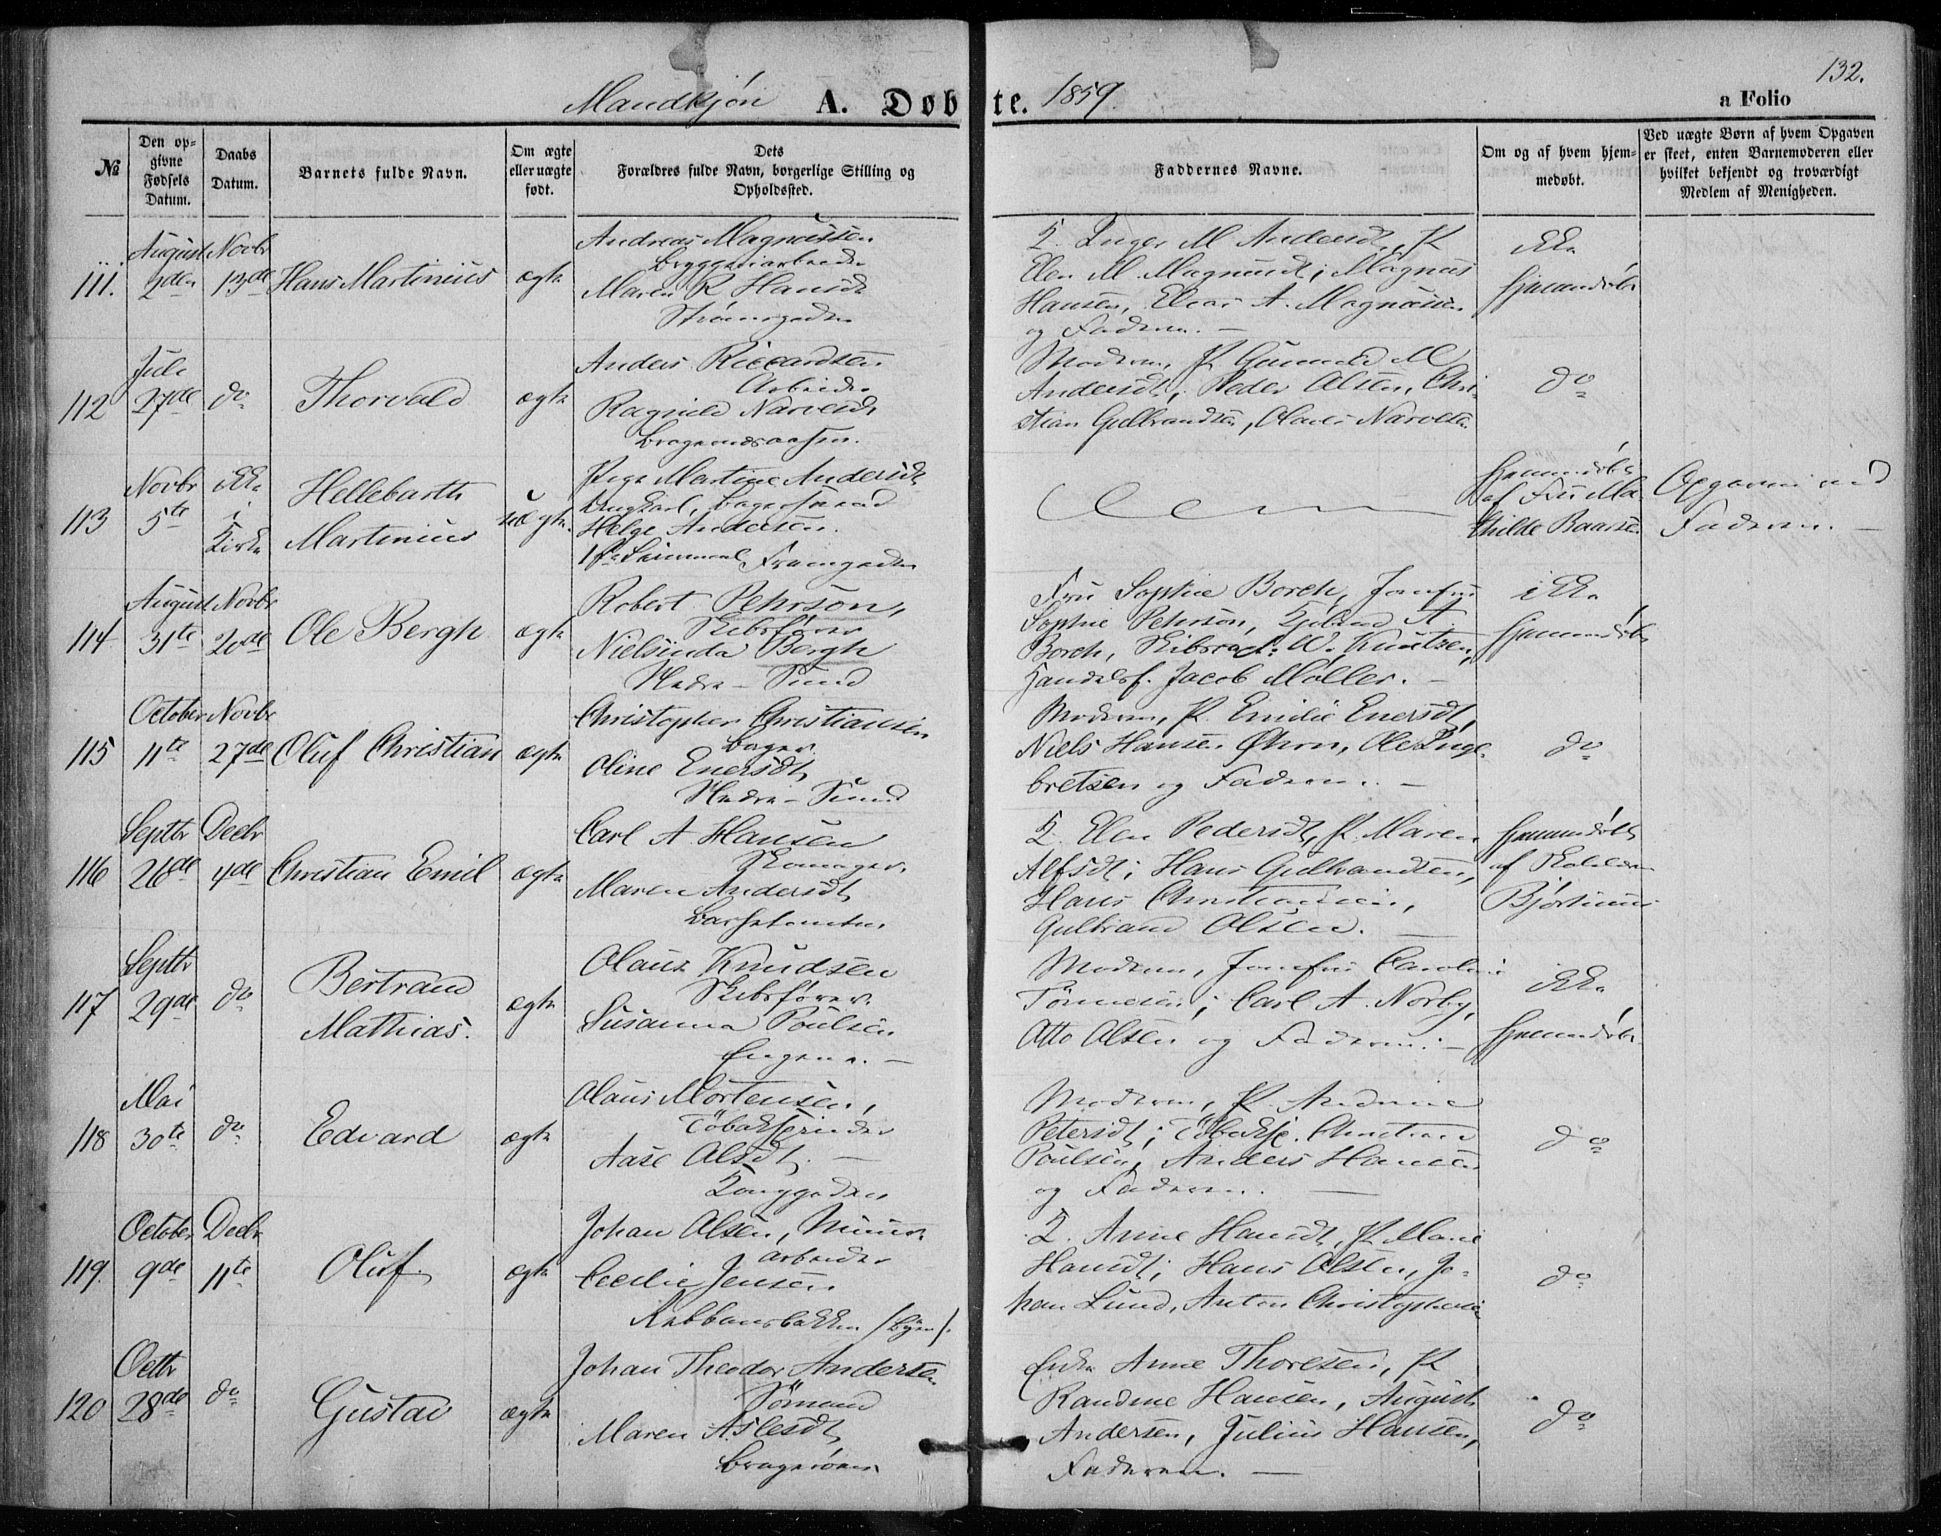 132.
Mandkjøn A. Døbte. 1859. a Folio
№
Den opgivne Fødsels Datum.
Daabs Datum.
Barnets fulde Navn.
Om ægte eller uægte født.
Dets Forældres fulde Navn, borgerlige Stilling og Opholdssted.
Faddernes Navne.
Om og af hvem hjemmedøbt.
Ved uægte Børn af hvem Opgaven er skeet, enten Barnemoderen eller hvilket bekjendt og troværdigt Medlem af Menigheden.
111. August 2den Novbr 13de Hans Martinius ægte
Andreas Magnussen
Bryggeriarbeider
Maren K Hansdt
Strømsgaden
K. Inger M Andersdt, P.
Elen M Magnusdt; Magnus
Hansen, A. Magnussen
og Faderen. —
ikke
hjemmedøbt
112 Juli 27de do Thorvald ægte
Anders Riccardsen
Arbeider
Ragnild Narvesdt
Bragernæsaasen.
Moderen, P. Gunnild M
Andersdt; Peder Olsen, Chri-
stian Gulbrandsen, Olaus Narvesen
do
113 Novbr 5te ikke i Kirke
Hellebarth
Martinius
uægte.
Pige Martine Andersdt
Ungkarl, Bagersvend
Helge Andersen.
Hjemmedøbt
af Fru Ma-
thilde Baarse
Opgaven ved
Faderen. —
114 August 31te Novbr 20de Ole Bergh ægte
Robert Pehrson,
Skibsfører
Nielsinda Bergh
Nedre-Sund
Fru Sophie Borch, Jomfru
Sophie Pehrson, A
Borch, W. Knutzen,
Handelsf. Jacob Møller. —
ikke
hjemmedøbt
115 October 11te Novbr 27de Oluf Christian ægte
Christopher Christiansen
Bager
Oline Enersdt,
Nedre-Sund
Moderen, P. Emilie Enersdt,
Niels Hansen Ohrn, Ole Inge-
bretsen og Faderen. —
do
116 Septbr 26de Decbr 4de Christian Emil ægte
Carl A Hansen
Skomager.
Maren Andersdt,
K. Elen Pedersdt, P. Maren
Alfsdt; Hans Gulbrandsen,
Hans Christiansen,
Gulbrand Olsen. —
hjemmedøbt
af
117 Septbr 29de do
Bertrand
Mathias.
ægte
Olaus Knudsen
Skibsfører.
Susanna Poulsen
Engene. —
Moderen, Jomfru Caroline
Tønnesen; Carl A. Norby,
Otto Olsen og Faderen. —
ikke
hjemmedøbt
118 Mai 30te do Edvard ægte
Olaus Mortensen,
Tobakspinder
Aase Olsdt. —
Konggaden
Moderen, P. Andrine
Petersdt; Tobaksp. Christian
Poulsen, Anders Hansen
og Faderen. —
do
119. October 9de Decbr 11te Oluf. ægte
Johan Olsen, Muur-
arbeider
Cecilie Jensen
(Byen).
K. Anne Hansdt, P. Marie
Hansdt; Hans Olsen, Jo-
han Lund, Anton Christophersen
do
120 Octbr 28de do Gustav ægte
Johan Theodor Andersen
Sømand
Maren Aslesdt,
Bragerøen
Enke Anne Thoresen, P.
Randine Hansen, August
Andersen, Julius Hansen,
Faderen. —
do